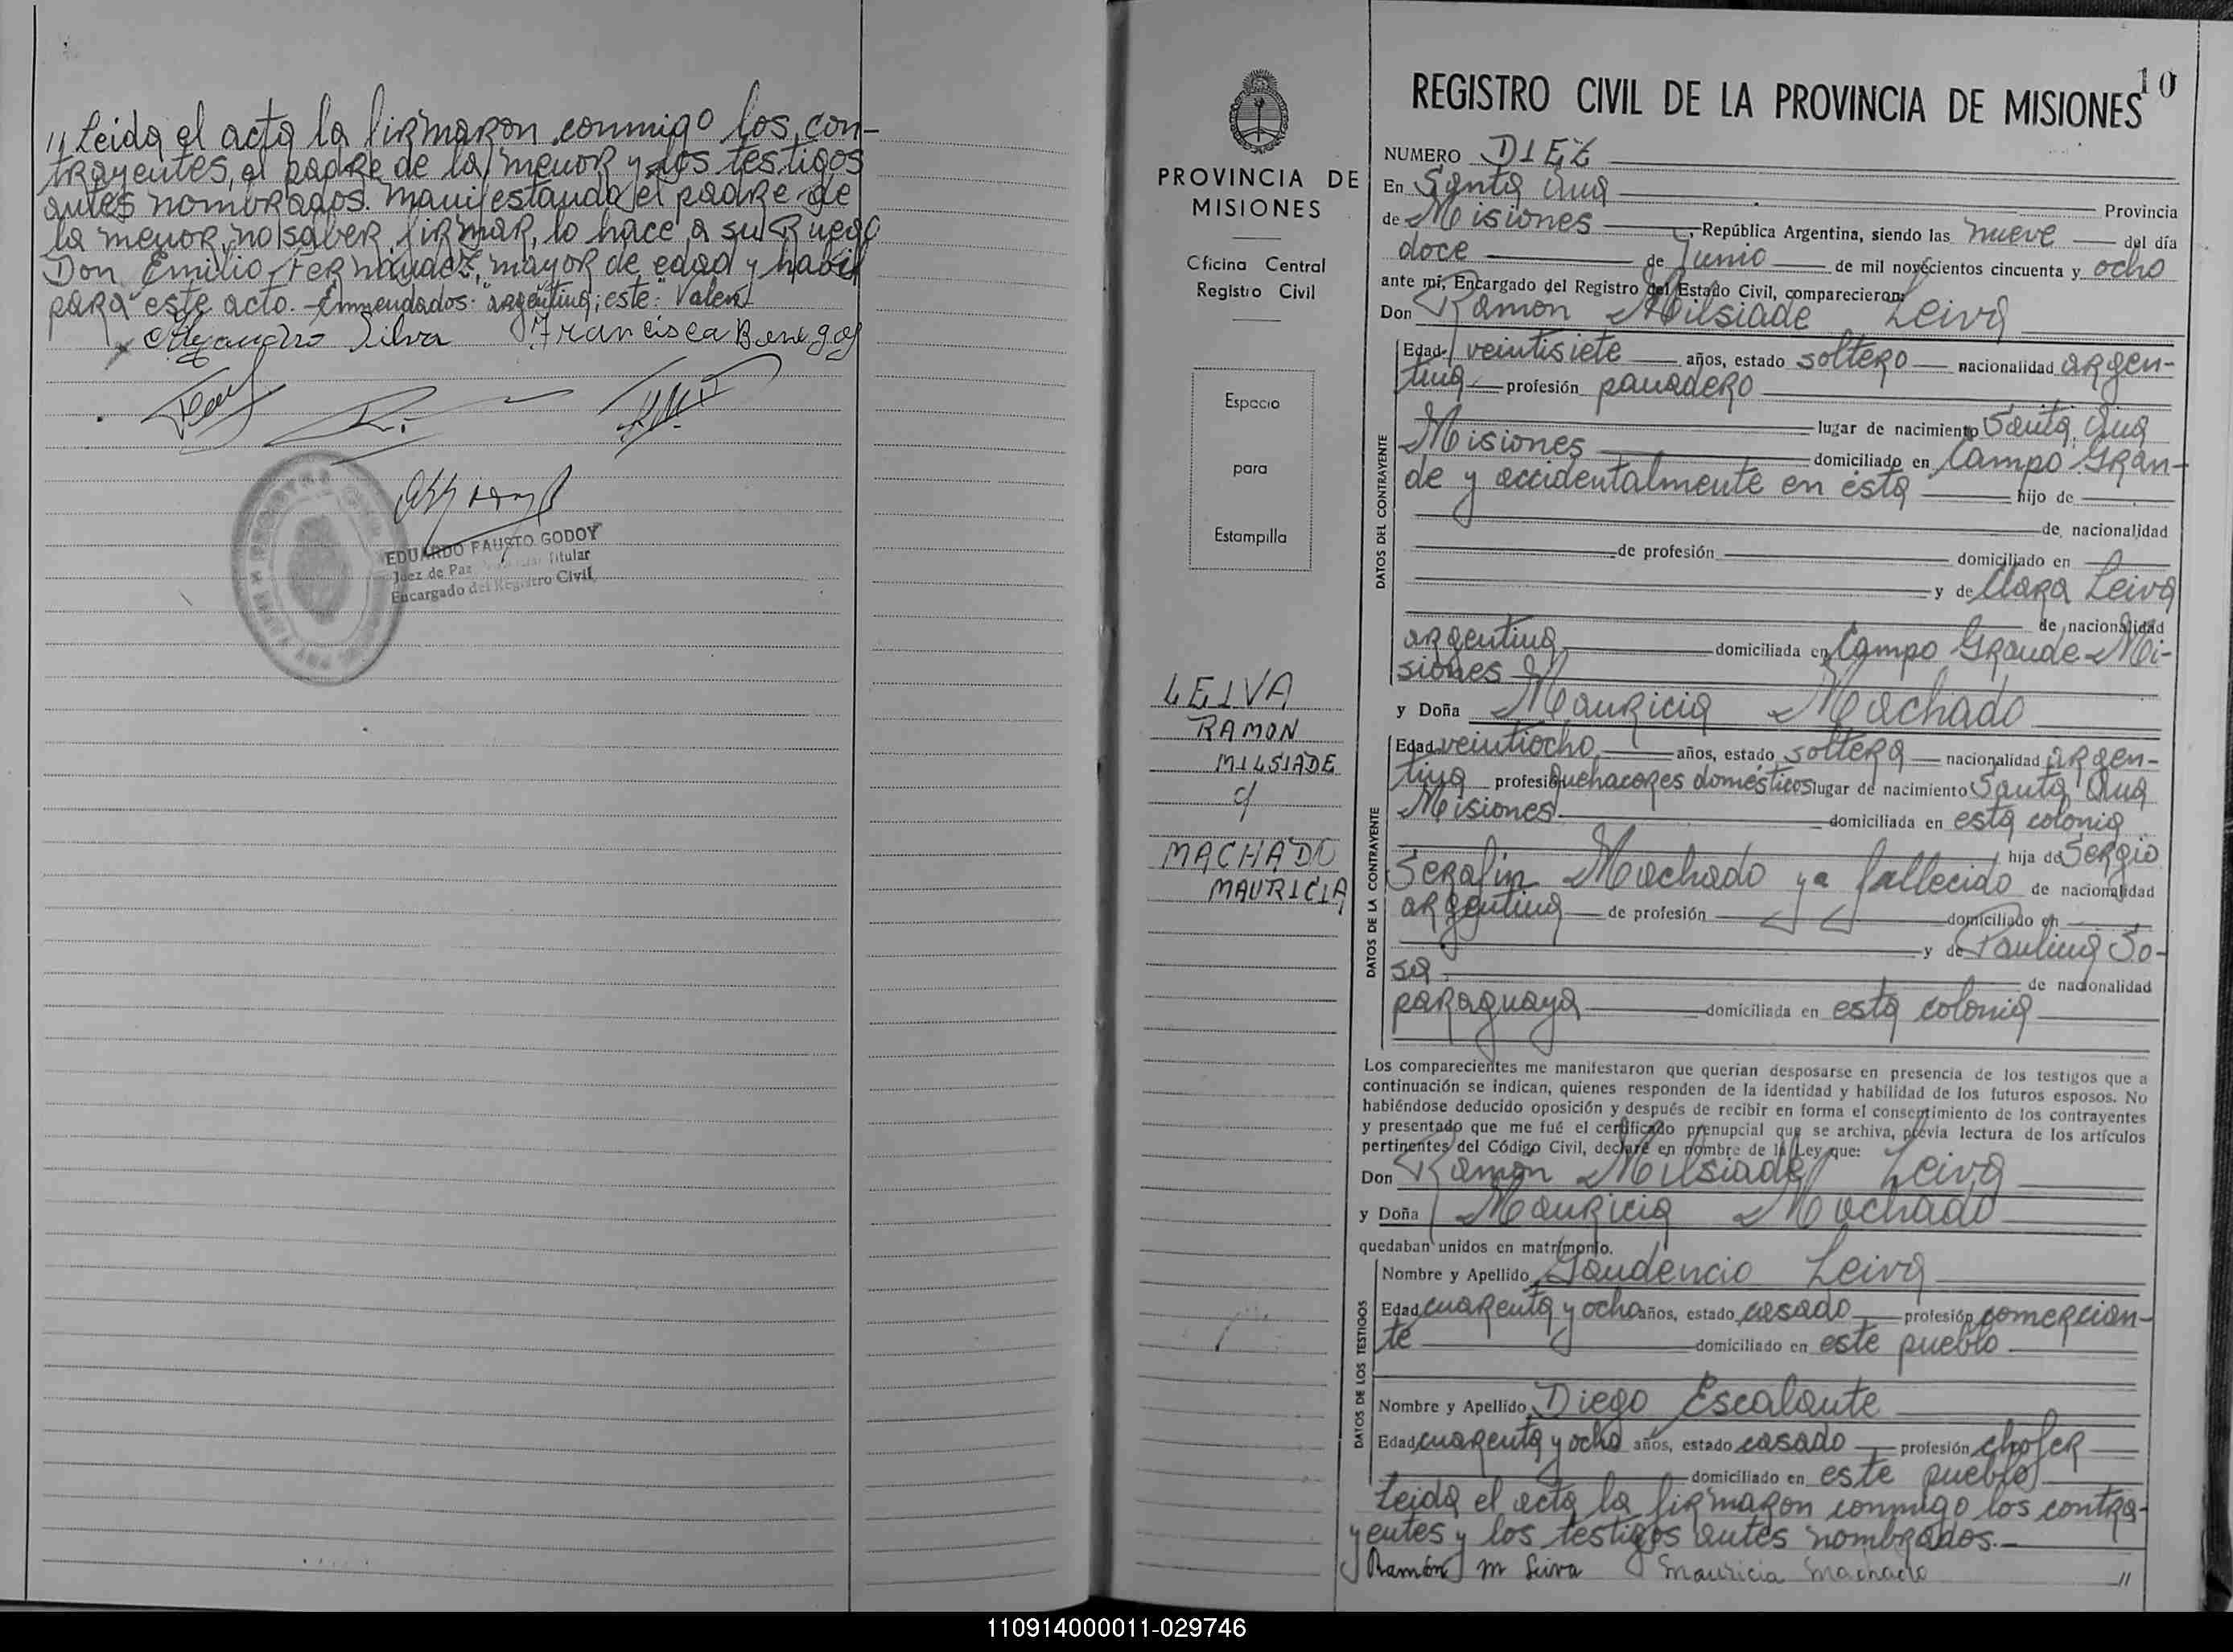 // Leida el acta la firmaron conmigo los con-
trayentes, el padre de la menor y los testigos
antes nombrados. Manifestando el padre de
la menor, no saber firmar, lo hace a su ruego
Don Emilio Fernandez, mayor de edad y habil
para este acto. Enmendados: "argentina; este": Valen
Alejandro Silva Francisca Benegas
EDUARDO FAUSTO GODOY
Juez de Paz Titular
Encargado del Registro Civil
PROVINCIA DE
MISIONES
Oficina Central
Registro Civil
Espacio
para
Estampilla
LEIVA
RAMON
MILSIADE
c/
MACHADO
MAURICIA
10
REGISTRO CIVIL DE LA PROVINCIA DE MISIONES
NUMERO DIEZ
En Santa Ana Provincia
de Misiones , República Argentina, siendo las nueve del día
doce de Junio de mil novecientos cincuenta y ocho
ante mi, Encargado del Registro del Estado Civil, comparecieron:
Don Ramon Milsiade Leiva
DATOS DEL CONTRAYENTE
Edad veintisiete años, estado soltero nacionalidad argen-
tina profesión panadero
lugar de nacimiento Santa Ana
Misiones domiciliado en Campo Gran-
de y accidentalmente en ésta hijo de
de nacionalidad
de profesión domiciliado en
y de Clara Leiva
de nacionalidad
argentina domiciliada en Campo Grande Mi-
siones
y Doña Mauricia Machado
DATOS DE LA CONTRAYENTE
Edad veintiocho años, estado soltera nacionalidad argen-
tina profesión quehaceres domésticos lugar de nacimiento Santa Ana
Misiones domiciliada en esta colonia
hija de Sergio
Serafin Machado ya fallecido de nacionalidad
argentina de profesión domiciliado en
y de Paulina So-
sa de nacionalidad
paraguaya domiciliada en esta colonia
Los comparecientes me manifestaron que querían desposarse en presencia de los testigos que a
continuación se indican, quienes responden de la identidad y habilidad de los futuros esposos. No
habiéndose deducido oposición y después de recibir en forma el consentimiento de los contrayentes
y presentado que me fué el certificado prenupcial que se archiva, previa lectura de los artículos
pertinentes del Código Civil, declaré en nombre de la Ley que:
Don Ramón Milsiade Leiva
y Doña Mauricia Machado
quedaban unidos en matrimonio.
DATOS DE LOS TESTIGOS
Nombre y Apellido Gaudencio Leiva
Edad cuarenta y ocho años, estado casado profesión comercian-
te domiciliado en este pueblo
Nombre y Apellido Diego Escalante
Edad cuarenta y ocho años, estado casado profesión chofer
domiciliado en este pueblo
Leida el acta la firmaron conmigo los contra-
yentes y los testigos antes nombrados.
Ramón M Leiva Mauricia Machado //
110914000011-029746